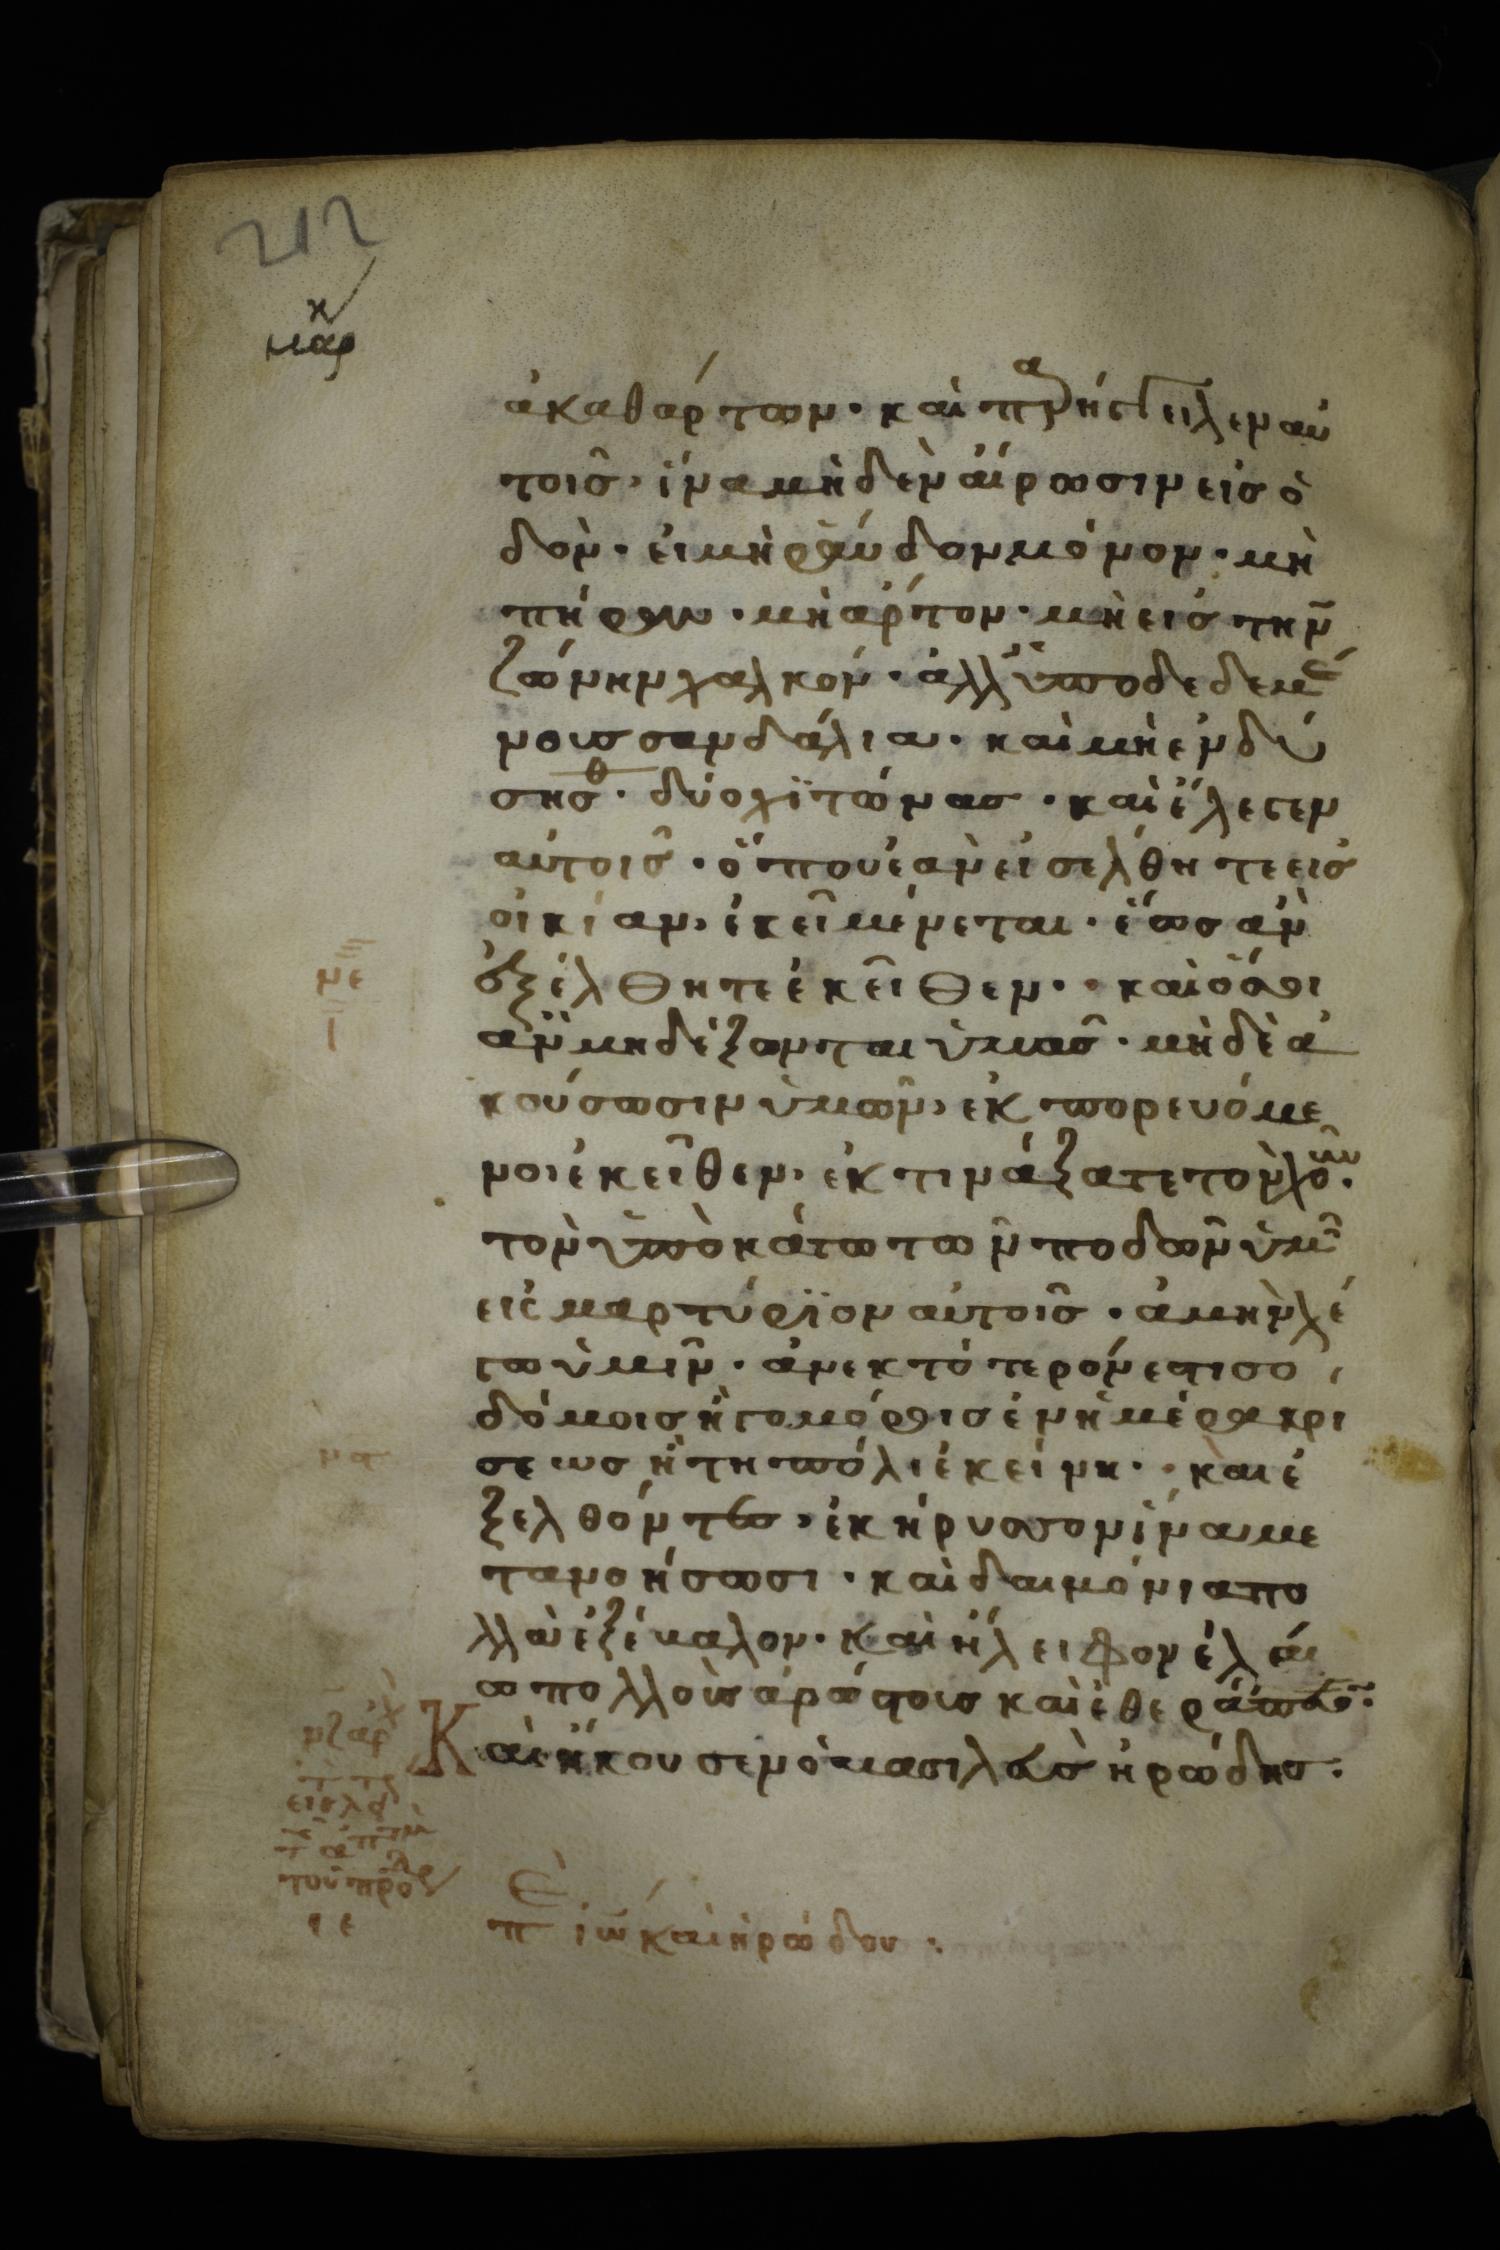 212
μαρκ
ἀκαθάρτων· καὶ παρήγγειλεν αὐ
τοῖς· ἵνα μὴδὲν αἴρωσιν εἰς ὁ
δὸν· εἰ μὴ ράβδον μόνον· μὴ
πήραν· μὴ ἄρτον· μὴ εἰς τὴν
ζώνην χαλκόν· ἀλλ' ὑποδεδεμέ
νους σανδάλια· καὶ μὴ ἐνδύ
σησθ· δύο χϊτῶνας· καὶ ἔλεγεν
αὐτοῖς· ὅπου ἐὰν εἰσέλθητε εἰς
οἰκίαν, ἐκεῖ μένεται· ἕως ἂν
ἐξέλθητε ἐκεῖθεν· καὶ ὅσοι
με
ἂν μὴ δέξωνται ὑμᾶς· μὴδὲ ἀ
κούσωσιν ὑμῶν, ἐκπορευόμε
νοι ἐκεῖθεν, ἐκτινάξατε τὸν χοῦν·
τὸν ὑποκάτω τῶν ποδῶν ὑμῶν
εἰς μαρτύρϊον αὐτοῖς· ἀμὴν λέ
γω ὑμῖν· ἀνεκτότερον ἔσται σο
δόμοις ἢ γομόρροις ἐν ἡμέρα κρι
σεως ἢ τῆ πόλι ἐκείνη· καὶ ἐ
μα
ξελθόντες, ἐκήρυσσον ἵνα με
τανοήσωσι· καὶ δαιμόνια πο
λλὰ ἐξέβαλον· καὶ ἤλειφον ἐλαί
ω πολλοὺς ἀρώστους καὶ ἐθεράπευον:
Καὶ ἤκουσεν ὁ βασιλεὺς ἡρώδης·
π ιω καὶ ἡρώδου: